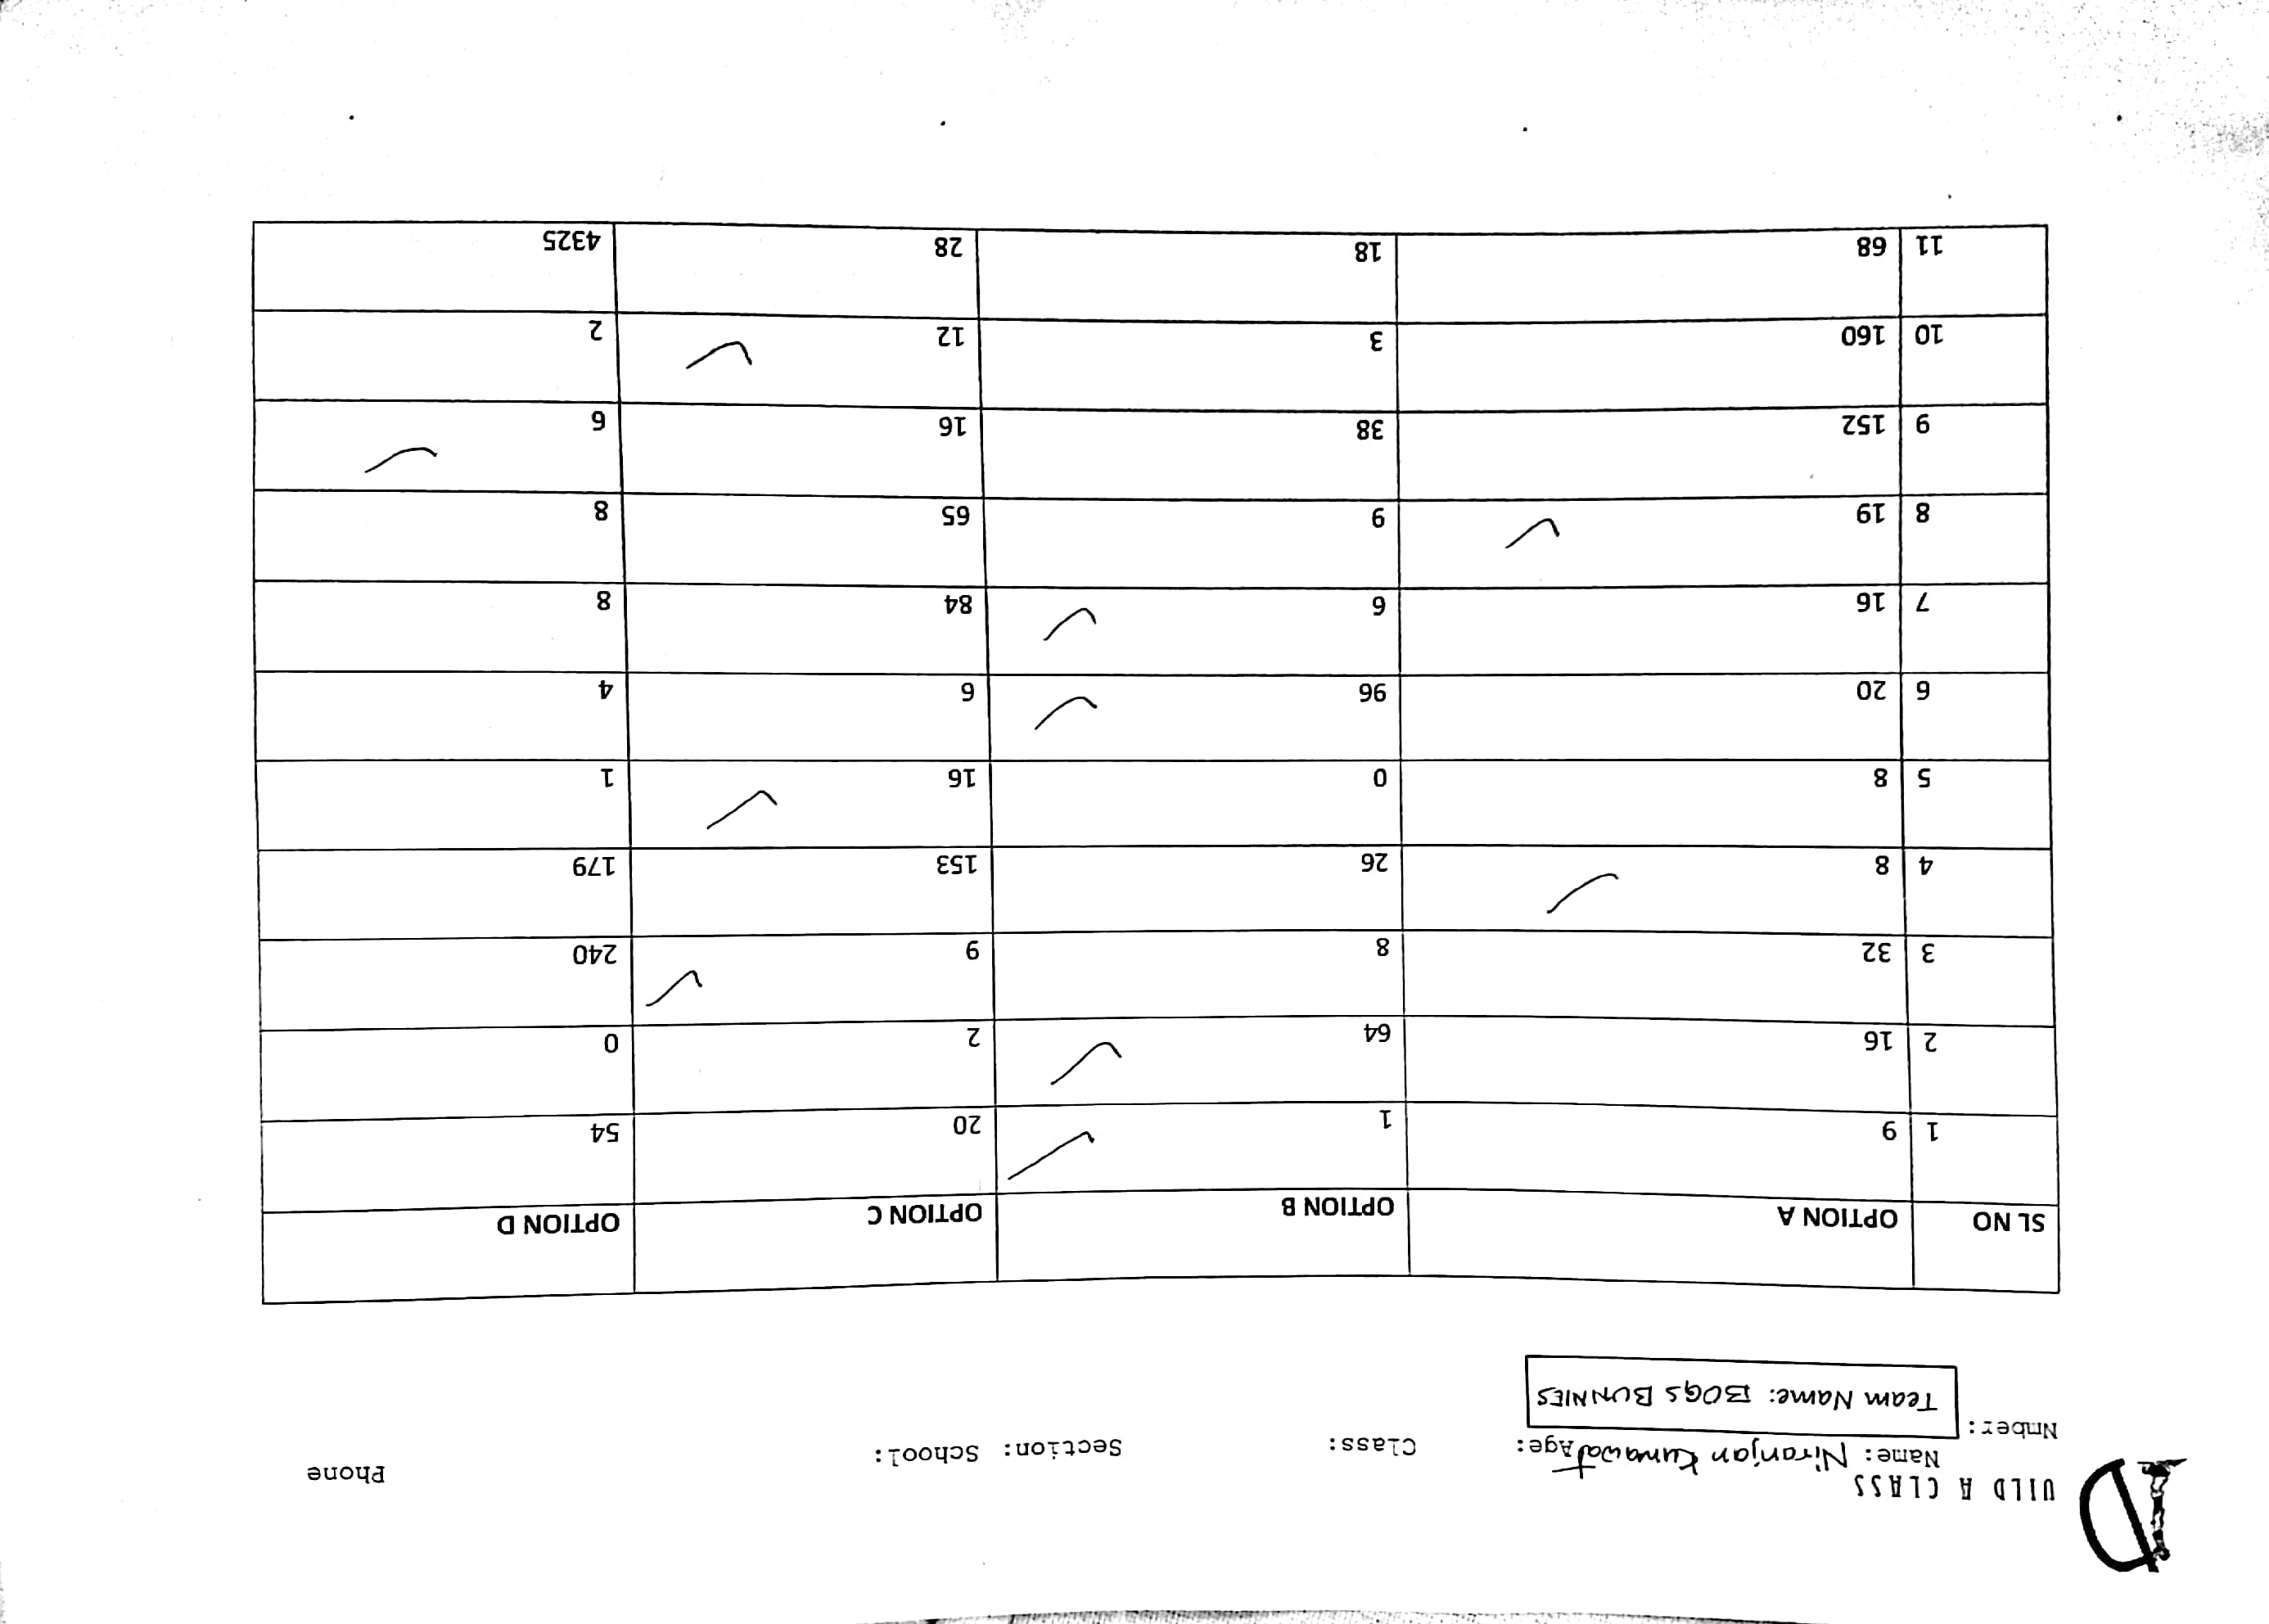 D UILD A CLASS
Name: Niranjan Kumawat Age: Class: Section: School: Phone
Nmber:
Team Name: BOGS BUNNIES
SL NO OPTION A OPTION B OPTION C OPTION D
1 9 1 ✓ 20 54
2 16 64 ✓ 2 0
3 32 8 9 ✓ 240
4 8 ✓ 26 153 179
5 8 0 16 ✓ 1
6 20 96 ✓ 6 4
7 16 6 ✓ 84 8
8 19 ✓ 9 65 8
9 152 38 16 6 ✓
10 160 3 12 ✓ 2
11 68 18 28 4325